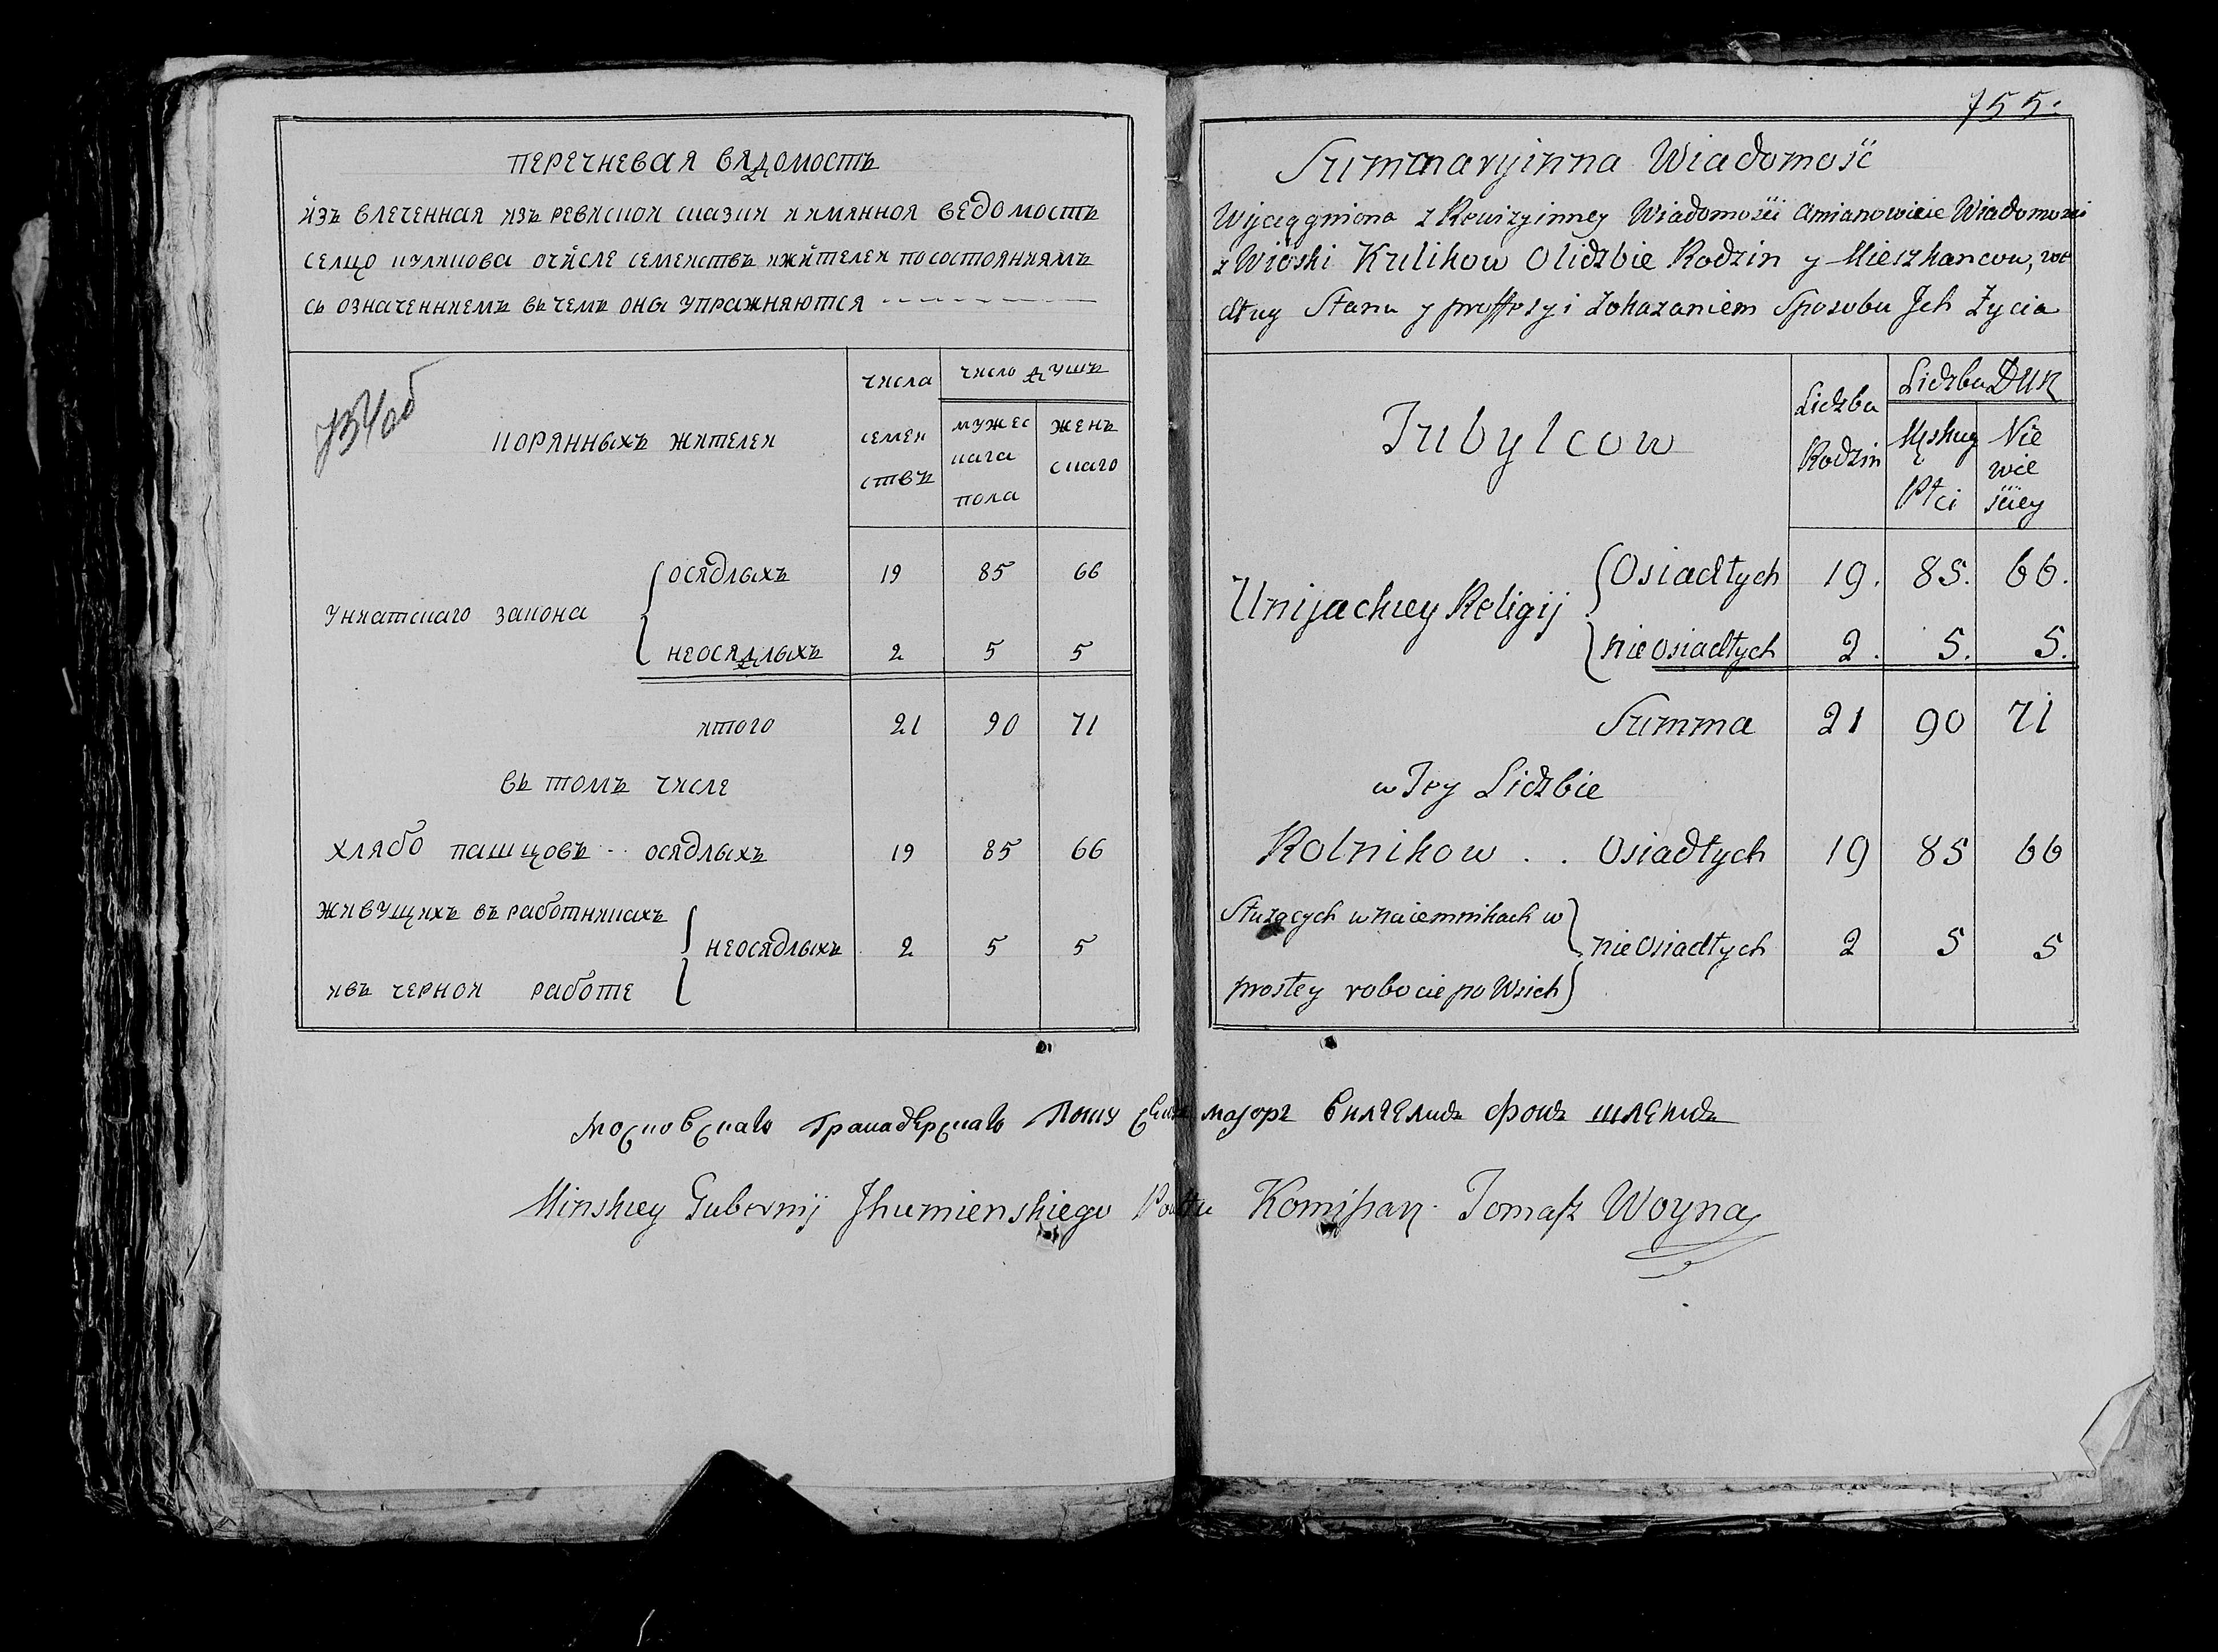 ПЕРЕЧНЕВАЯ ВЯДОМОСТЬ
изъ влеченная изъ ревиской сказки иимянной ведомость
селцо куликова очисле семействъ ижителей посостояниямъ
съ означенниемъ въчемъ оны упражняются
числа семействъ
число душъ
корянныхъ жителей
мужескага пола
женъскаго
униатскаго закона
осядлыхъ 19 85 66
неосядлыхъ 2 5 5
итого 21 90 71
въ томъ числе
хлябо пашцовъ осядлыхъ 19 85 66
живущихъ въ работникахъ
неосядлыхъ 2 5 5
ивъ черной работе
755.
Summaryinna Wiadomość
Wyciągniona z Rewizyinney Wiadomości Amianowicie Wiadomości
z Wioski Kulikow Olidzbie Rodzin y Mieszkancow, we
dług Stanu y proffesyi zokazaniem Sposobu Jch Życia
Tubylcow
Lidzba Rodzin
Lidzba Duk
Męskiey Płci
Nie wie ściey
Unijackiey Religij
Osiadłych 19. 85. 66.
nie osiadłych 2. 5. 5.
Summa 21 90 71
w Tey Lidzbie
Rolnikow . . Osiadłych 19 85 66
Służących w naiemnikach w
nie Osiadłych 2 5 5
prostey robocie po Wsich
Московскаго Гранадерскаго Полку Секунъ маіоръ Вилгелмъ фонъ
Minskiey Gubernij Jhumienskiego Powtu Komissarz Tomasz Woyna